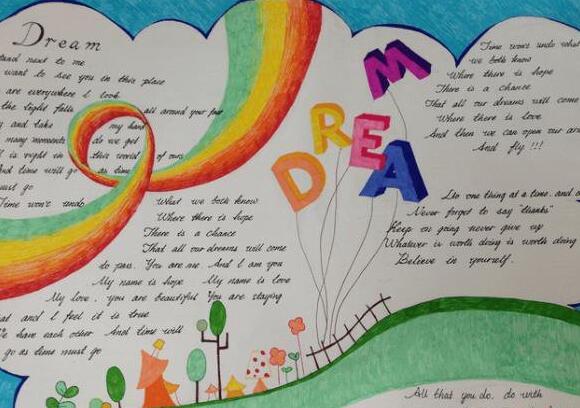 Dream
tand next to me
want to see you in this place
are everywhere I look
the light falls all around your face
y and take my hand
many moments do we get
I is right in this world of ours
And time will go as time
ust go
Time won't undo
What we both know
Where there is hope
There is a chance
That all our dreams will come
to pass. You are me. And I am you
My name is hope My name is love
My love, you are beautiful You are staying
at and I feel it is true
We have each other And time will
go as time must go
DREAM
Time won't undo what
we both know
Where there is hope
There is a chance
That all our dreams will come
Where there is love
And then we can open our
And fly!!!
Do one thing at a time, and
Never forget to say "thanks"
Keep on going never give up
Whatever is worth doing is worth doing
Believe in yourself.
All that you do, do with